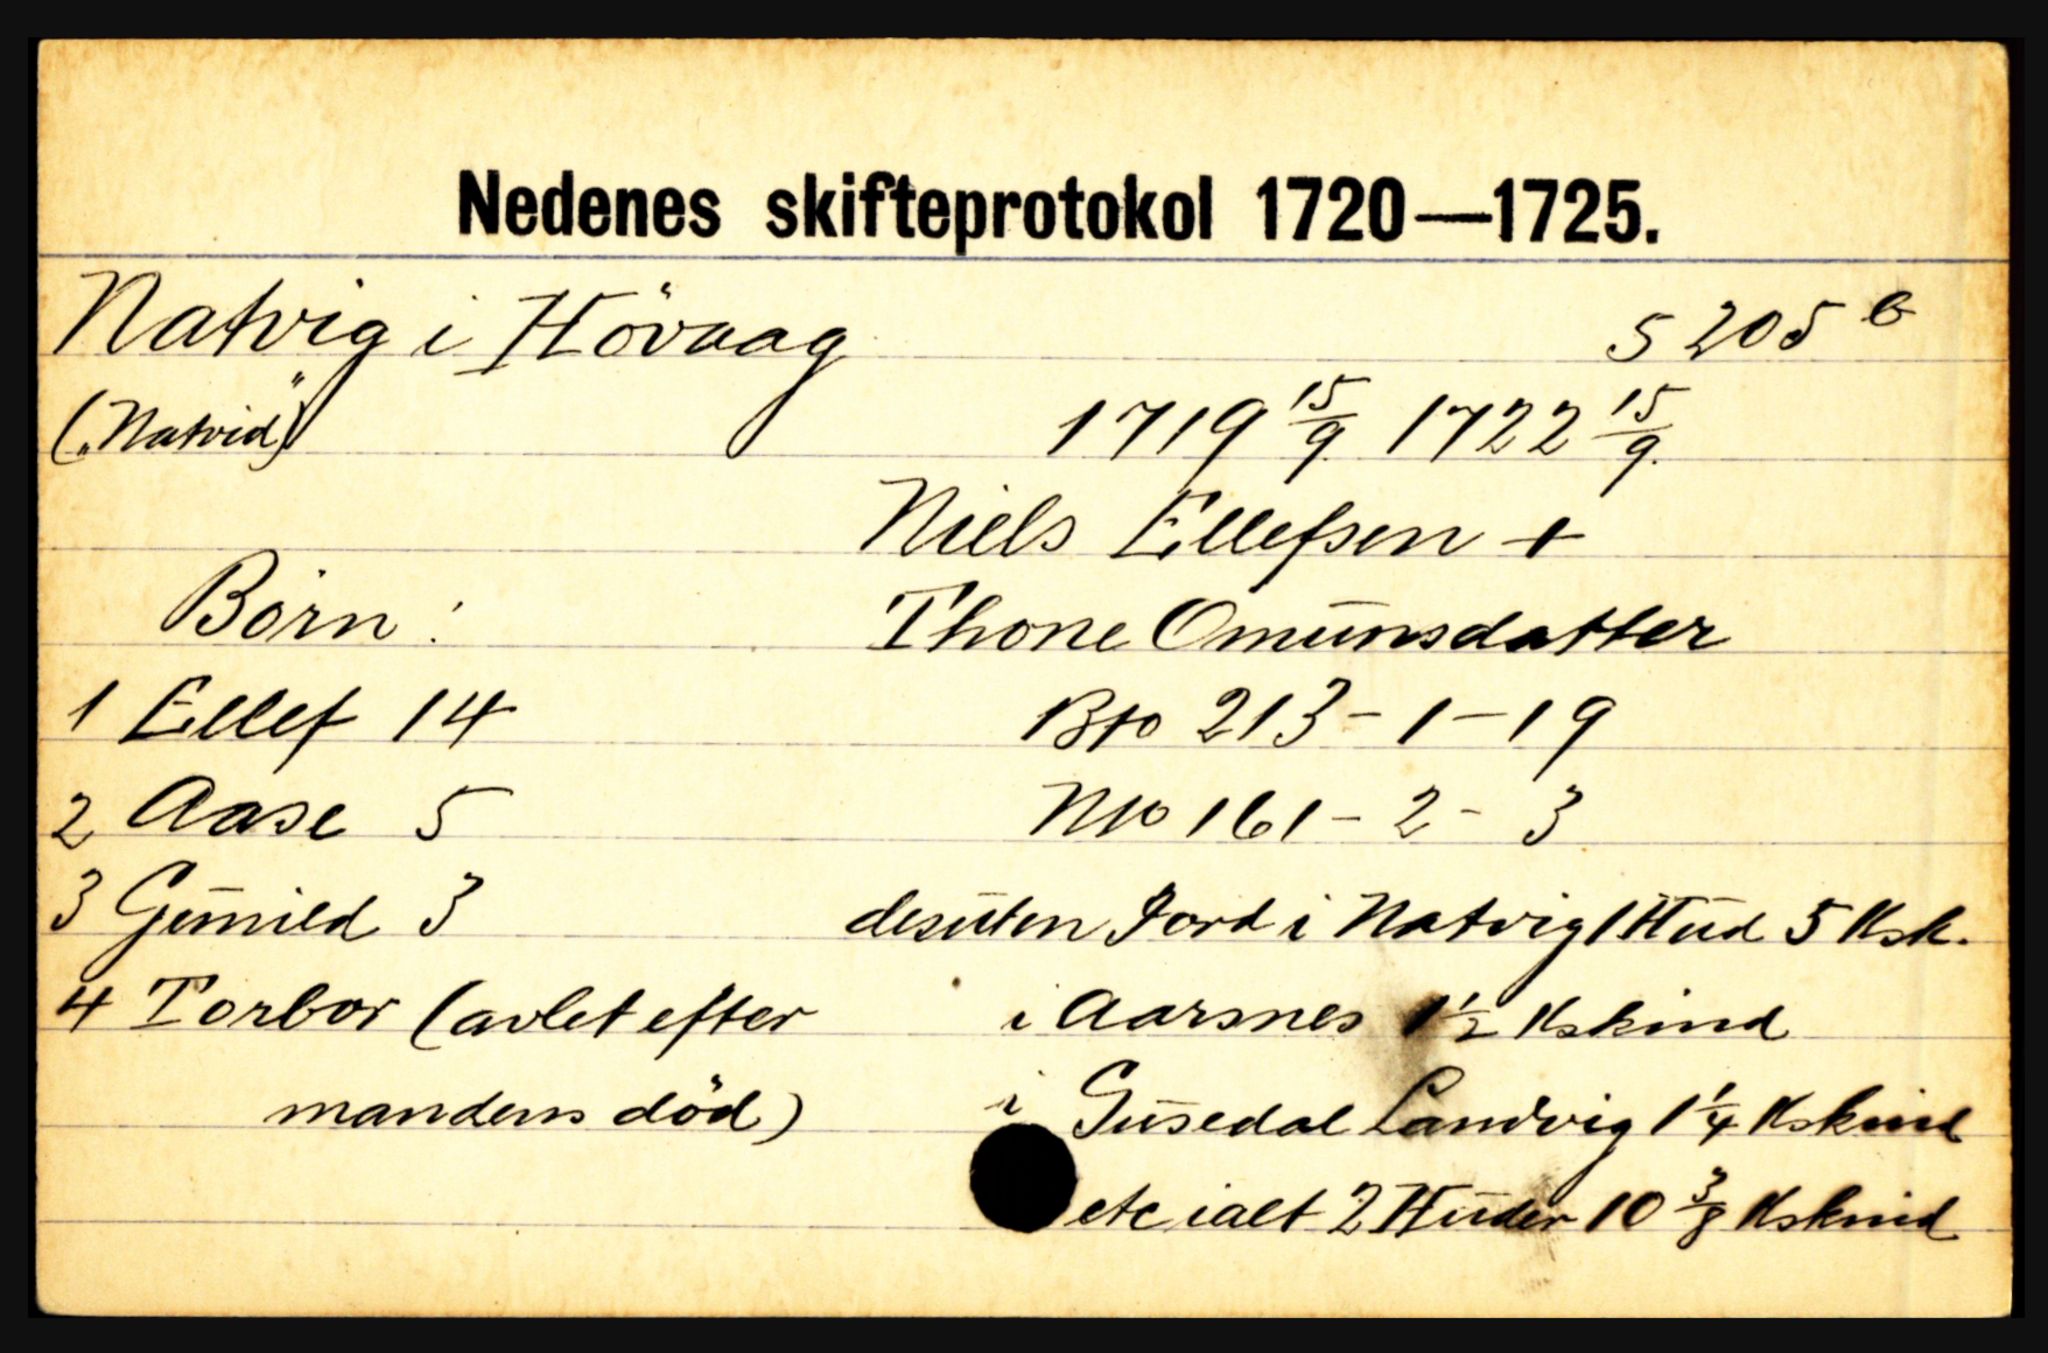 Nedenes skifteprotokol 1720—1725.
Natvig i Hövaag S 205 b
("Natvid") 1719 15/9. 1722 15/9.
Niels Ellefsen +
Börn: Thone Omunsdatter
1 Ellef 14 Bto 213 - 1 - 19
2 Aase 5 Nto 161 - 2 - 3
3 Gunild 3 desuten Jord i Natvig 1 Hud 5 Ksk.
4 Torbor (avlet efter i Aarsnes 1 1/2 Kskind
mandens död) i Gusedal Landvig 1 1/4 Kskind
etc ialt 2 Huder 10 3/8 Kskind